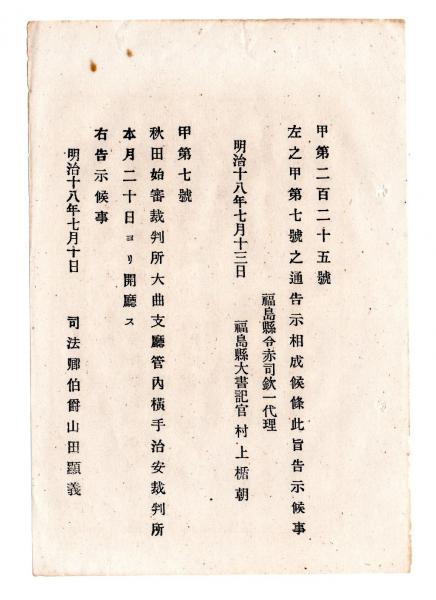 甲第二百二十五號
左之甲第七號之通告示相成候條此旨告示候事
福島縣令赤司欽一代理
明治十八年七月十三日　福島縣大書記官村上楯朝
甲第七號
秋田始審裁判所大曲支廳管內橫手治安裁判所
本月二十日ヨリ開廳ス
右告示候事
明治十八年七月十日　司法卿伯爵山田顯義